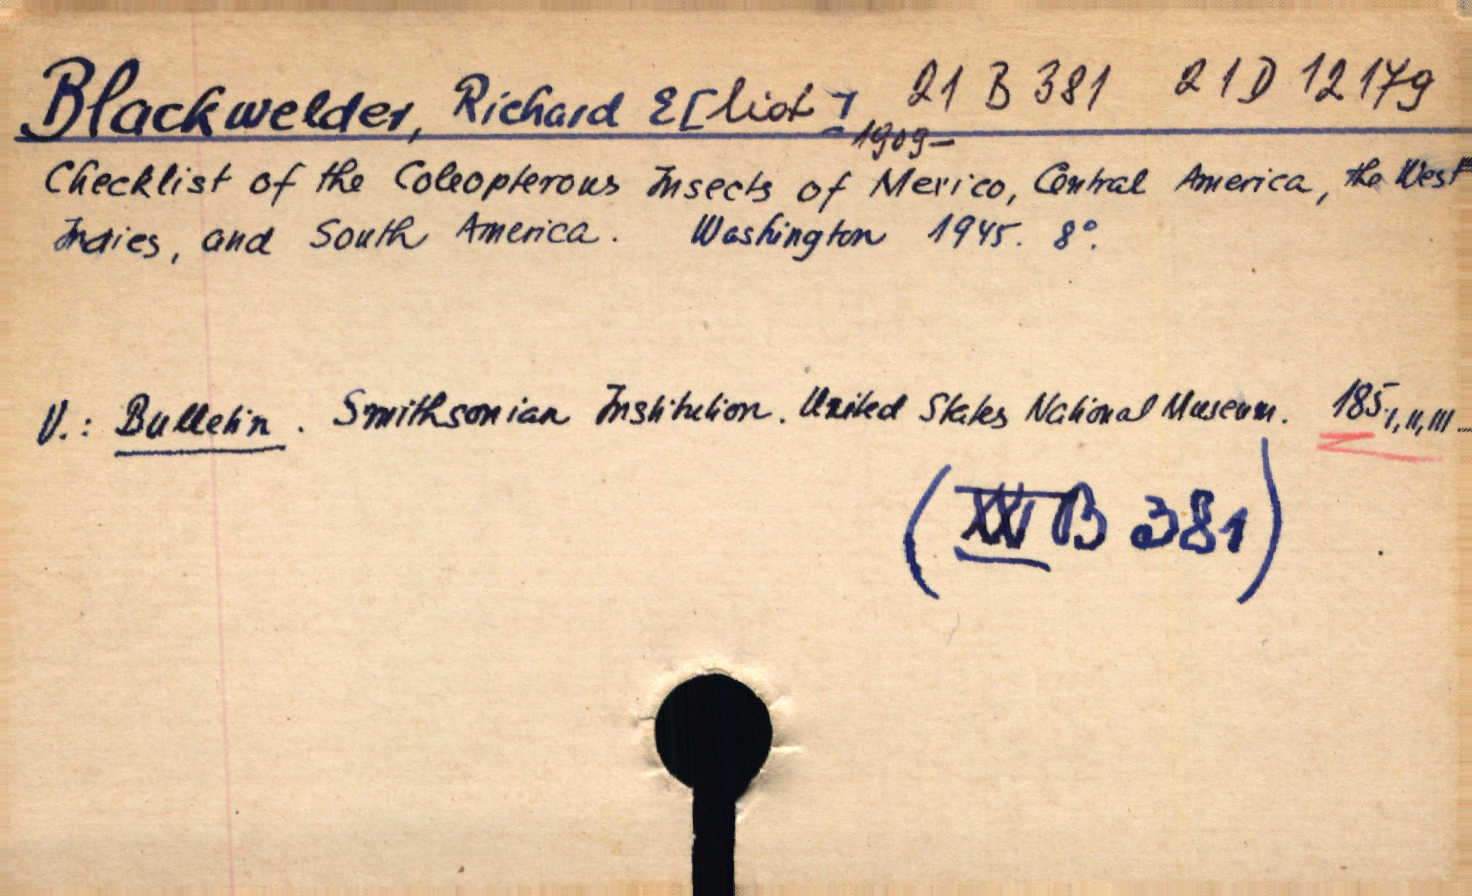 Blackwelder, Richard E[liot] 21 B 381 21 D 12179
1909-
Checklist of the Coleopterous Insects of Mexico, Central America, the West
Indies, and South America. Washington 1945. 8°.
V.: Bulletin. Smithsonian Institution. United States National Museum. 185, I, II, III ...
(XXI B 381)